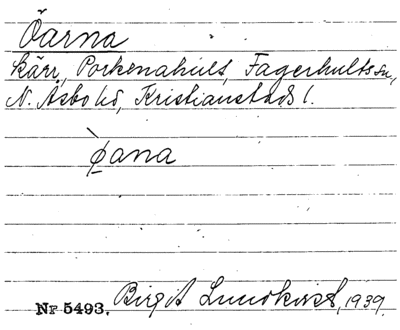 Öarna
kärr, Porkenahult, Fagerhults sn,
N. Åsbo hd, Kristianstads l.
ø̀ana
Nr 5493. Birgit Lundkvist, 1939.